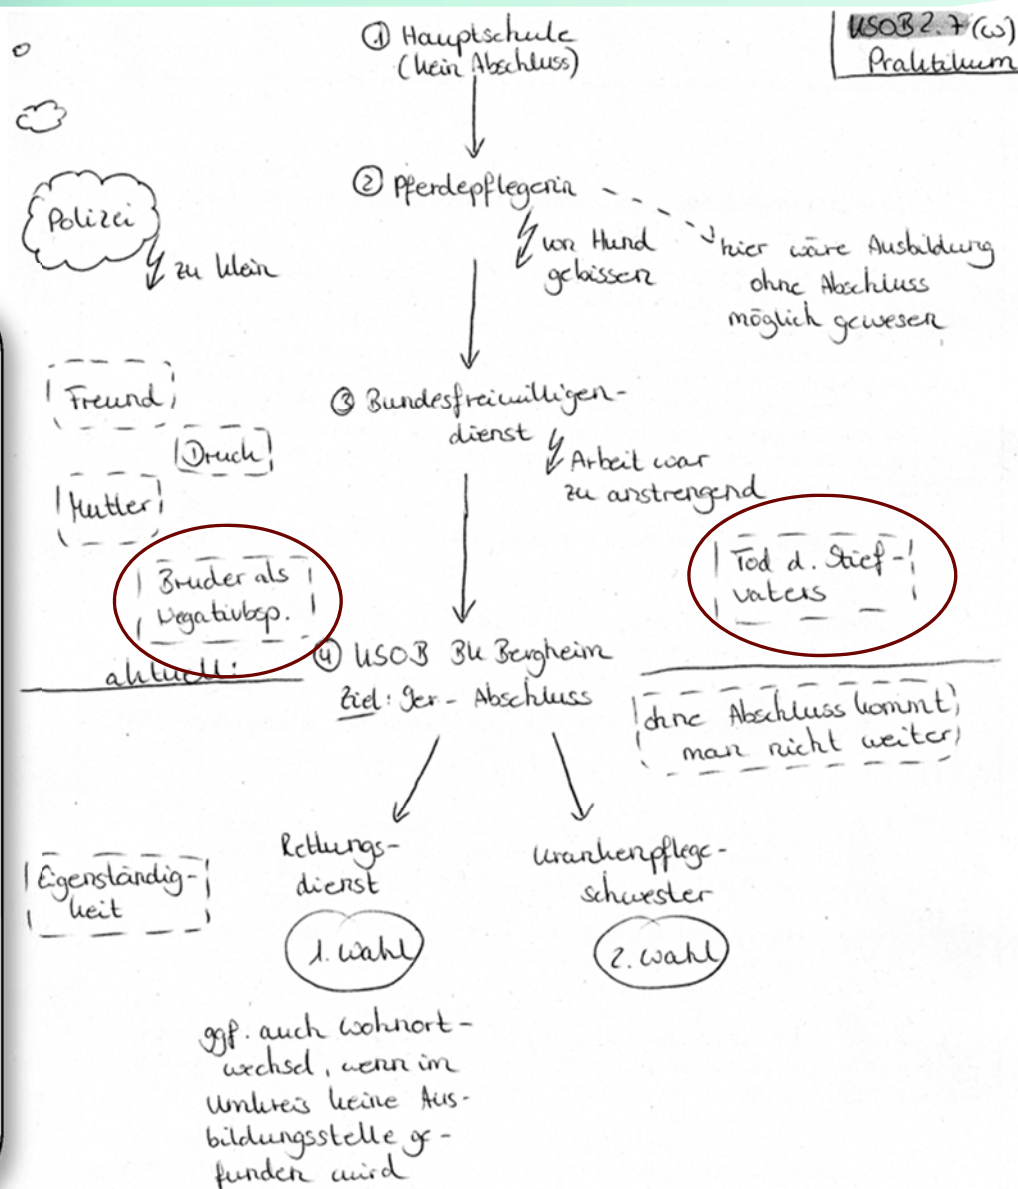 ① Hauptschule
(kein Abschluss)
KSOB 2.7 (w)
Praktikum
② Pferdepflegerin
Polizei
zu klein
von Hund
gebissen
hier wäre Ausbildung
ohne Abschluss
möglich gewesen
Freund
Druck
Mutter
Bruder als
Negativbsp.
③ Bundesfreiwilligen-
dienst
Arbeit war
zu anstrengend
Tod d. Stief-
vaters
aktuell:
④ KSOB BK Bergheim
Ziel: 9er-Abschluss
ohne Abschluss kommt
man nicht weiter
Eigenständig-
keit
Rettungs-
dienst
1. Wahl
Krankenpflege-
schwester
2. Wahl
ggf. auch Wohnort-
wechsel, wenn im
Umkreis keine Aus-
bildungsstelle ge-
funden wird